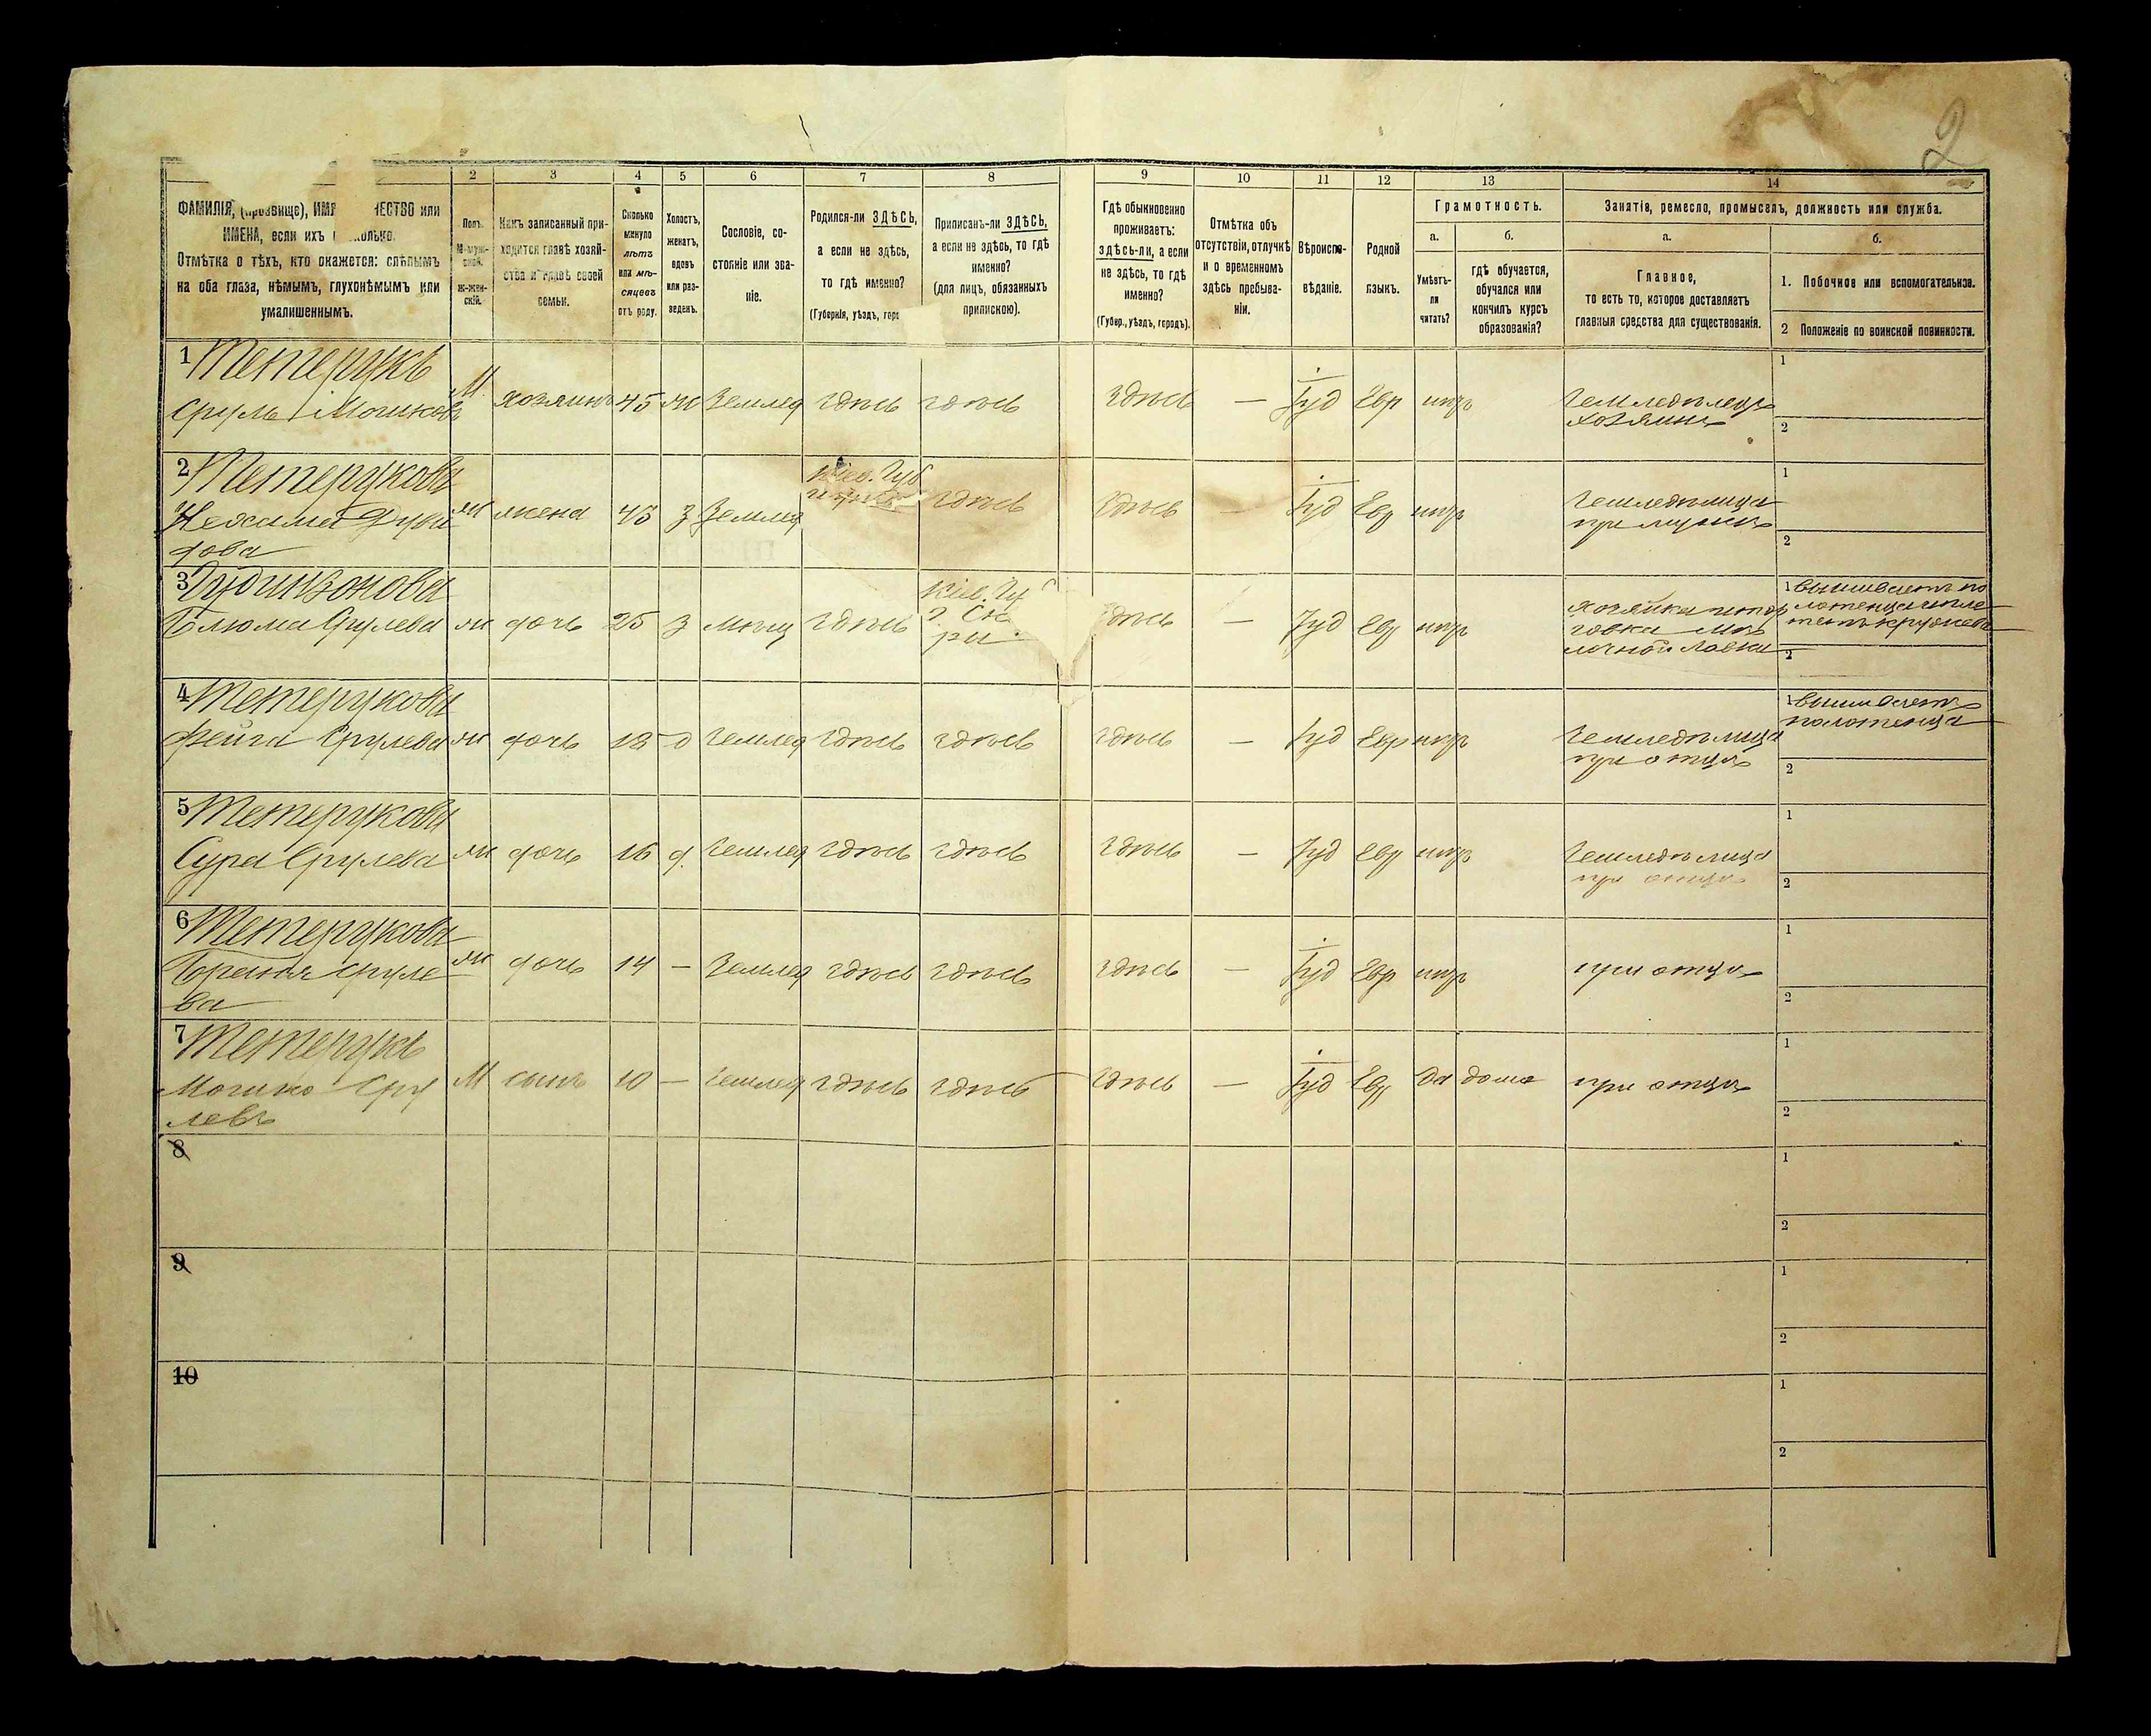 2
2 3 4 5 6 7 8 9 10 11 12 13 14
ФАМИЛІЯ, (прозвище), ИМЯ ЧЕСТВО или
ИМЕНА, если ихъ колько.
Отмѣтка о тѣхъ, кто окажется: слѣпымъ
на оба глаза, нѣмымъ, глухонѣмымъ или
умалишеннымъ.
Полъ.
М-муж-
ской.
Ж-жен-
скій.
Какъ записанный при-
ходится главѣ хозяй-
ства и главѣ своей
семьи.
Сколько
минуло
лѣтъ
или мѣ-
сяцевъ
отъ роду.
Холостъ,
женатъ,
вдовъ
или раз-
веденъ.
Сословіе, со-
стояніе или зва-
ніе.
Родился-ли ЗДѢСЬ,
а если не здѣсь,
то гдѣ именно?
(Губернія, уѣздъ, гор
Приписанъ-ли ЗДѢСЬ,
а если не здѣсь, то гдѣ
именно?
(для лицъ, обязанныхъ
припискою).
Гдѣ обыкновенно
проживаетъ:
здѣсь-ли, а если
не здѣсь, то гдѣ
именно?
(Губер., уѣздъ, городъ).
Отмѣтка объ
отсутствіи, отлучкѣ
и о временномъ
здѣсь пребыва-
ніи.
Вѣроиспо-
вѣданіе.
Родной
языкъ.
Грамотность.
а.
Умѣетъ-
ли
читать?
б.
гдѣ обучается,
обучался или
кончилъ курсъ
образованія?
Занятіе, ремесло, промыселъ, должность или служба.
а.
Главное,
то есть то, которое доставляетъ
главныя средства для существованія.
б.
1. Побочное или вспомогательное.
2 Положеніе по воинской повинности.
1 Тетерукъ
Сруль Мошковъ М хозяинъ 45 ж Землед здѣсь здѣсь здѣсь — Іуд Евр нѣтъ Земледѣлецъ
хозяинъ
1
2
2 Тетерукова
Нехама Дуви
дова ж жена 45 З Землед Кіев. Губ здѣсь здѣсь — Іуд Евр нѣтъ Земледѣлица
при мужѣ
1
2
3
Блюма Срулева ж дочь 25 З мѣщ здѣсь Кіев. Гу
здѣсь — Іуд Евр нѣтъ хозяйка и тор
говка ме
лочной лавки
1 вышиваетъ по
лотенца и пле
тетъ кружева
2
4 Тетерукова
Фейга Срулева ж дочь 18 д Землед здѣсь здѣсь здѣсь — Іуд Евр нѣтъ Земледѣлица
при отцѣ
1 вышиваетъ
полотенца
2
5 Тетерукова
Сура Срулева ж дочь 16 д. Землед здѣсь здѣсь здѣсь — Іуд Евр нѣтъ Земледѣлица
при отцѣ
1
2
6 Тетерукова
Браня Сруле
ва ж дочь 14 — Землед здѣсь здѣсь здѣсь — Іуд Евр нѣтъ при отцѣ
1
2
7 Тетерукъ
Мошко Сру
левъ М сынъ 10 — Землед здѣсь здѣсь здѣсь — Іуд Евр да дома при отцѣ
1
2
8
1
2
9
1
2
10
1
2